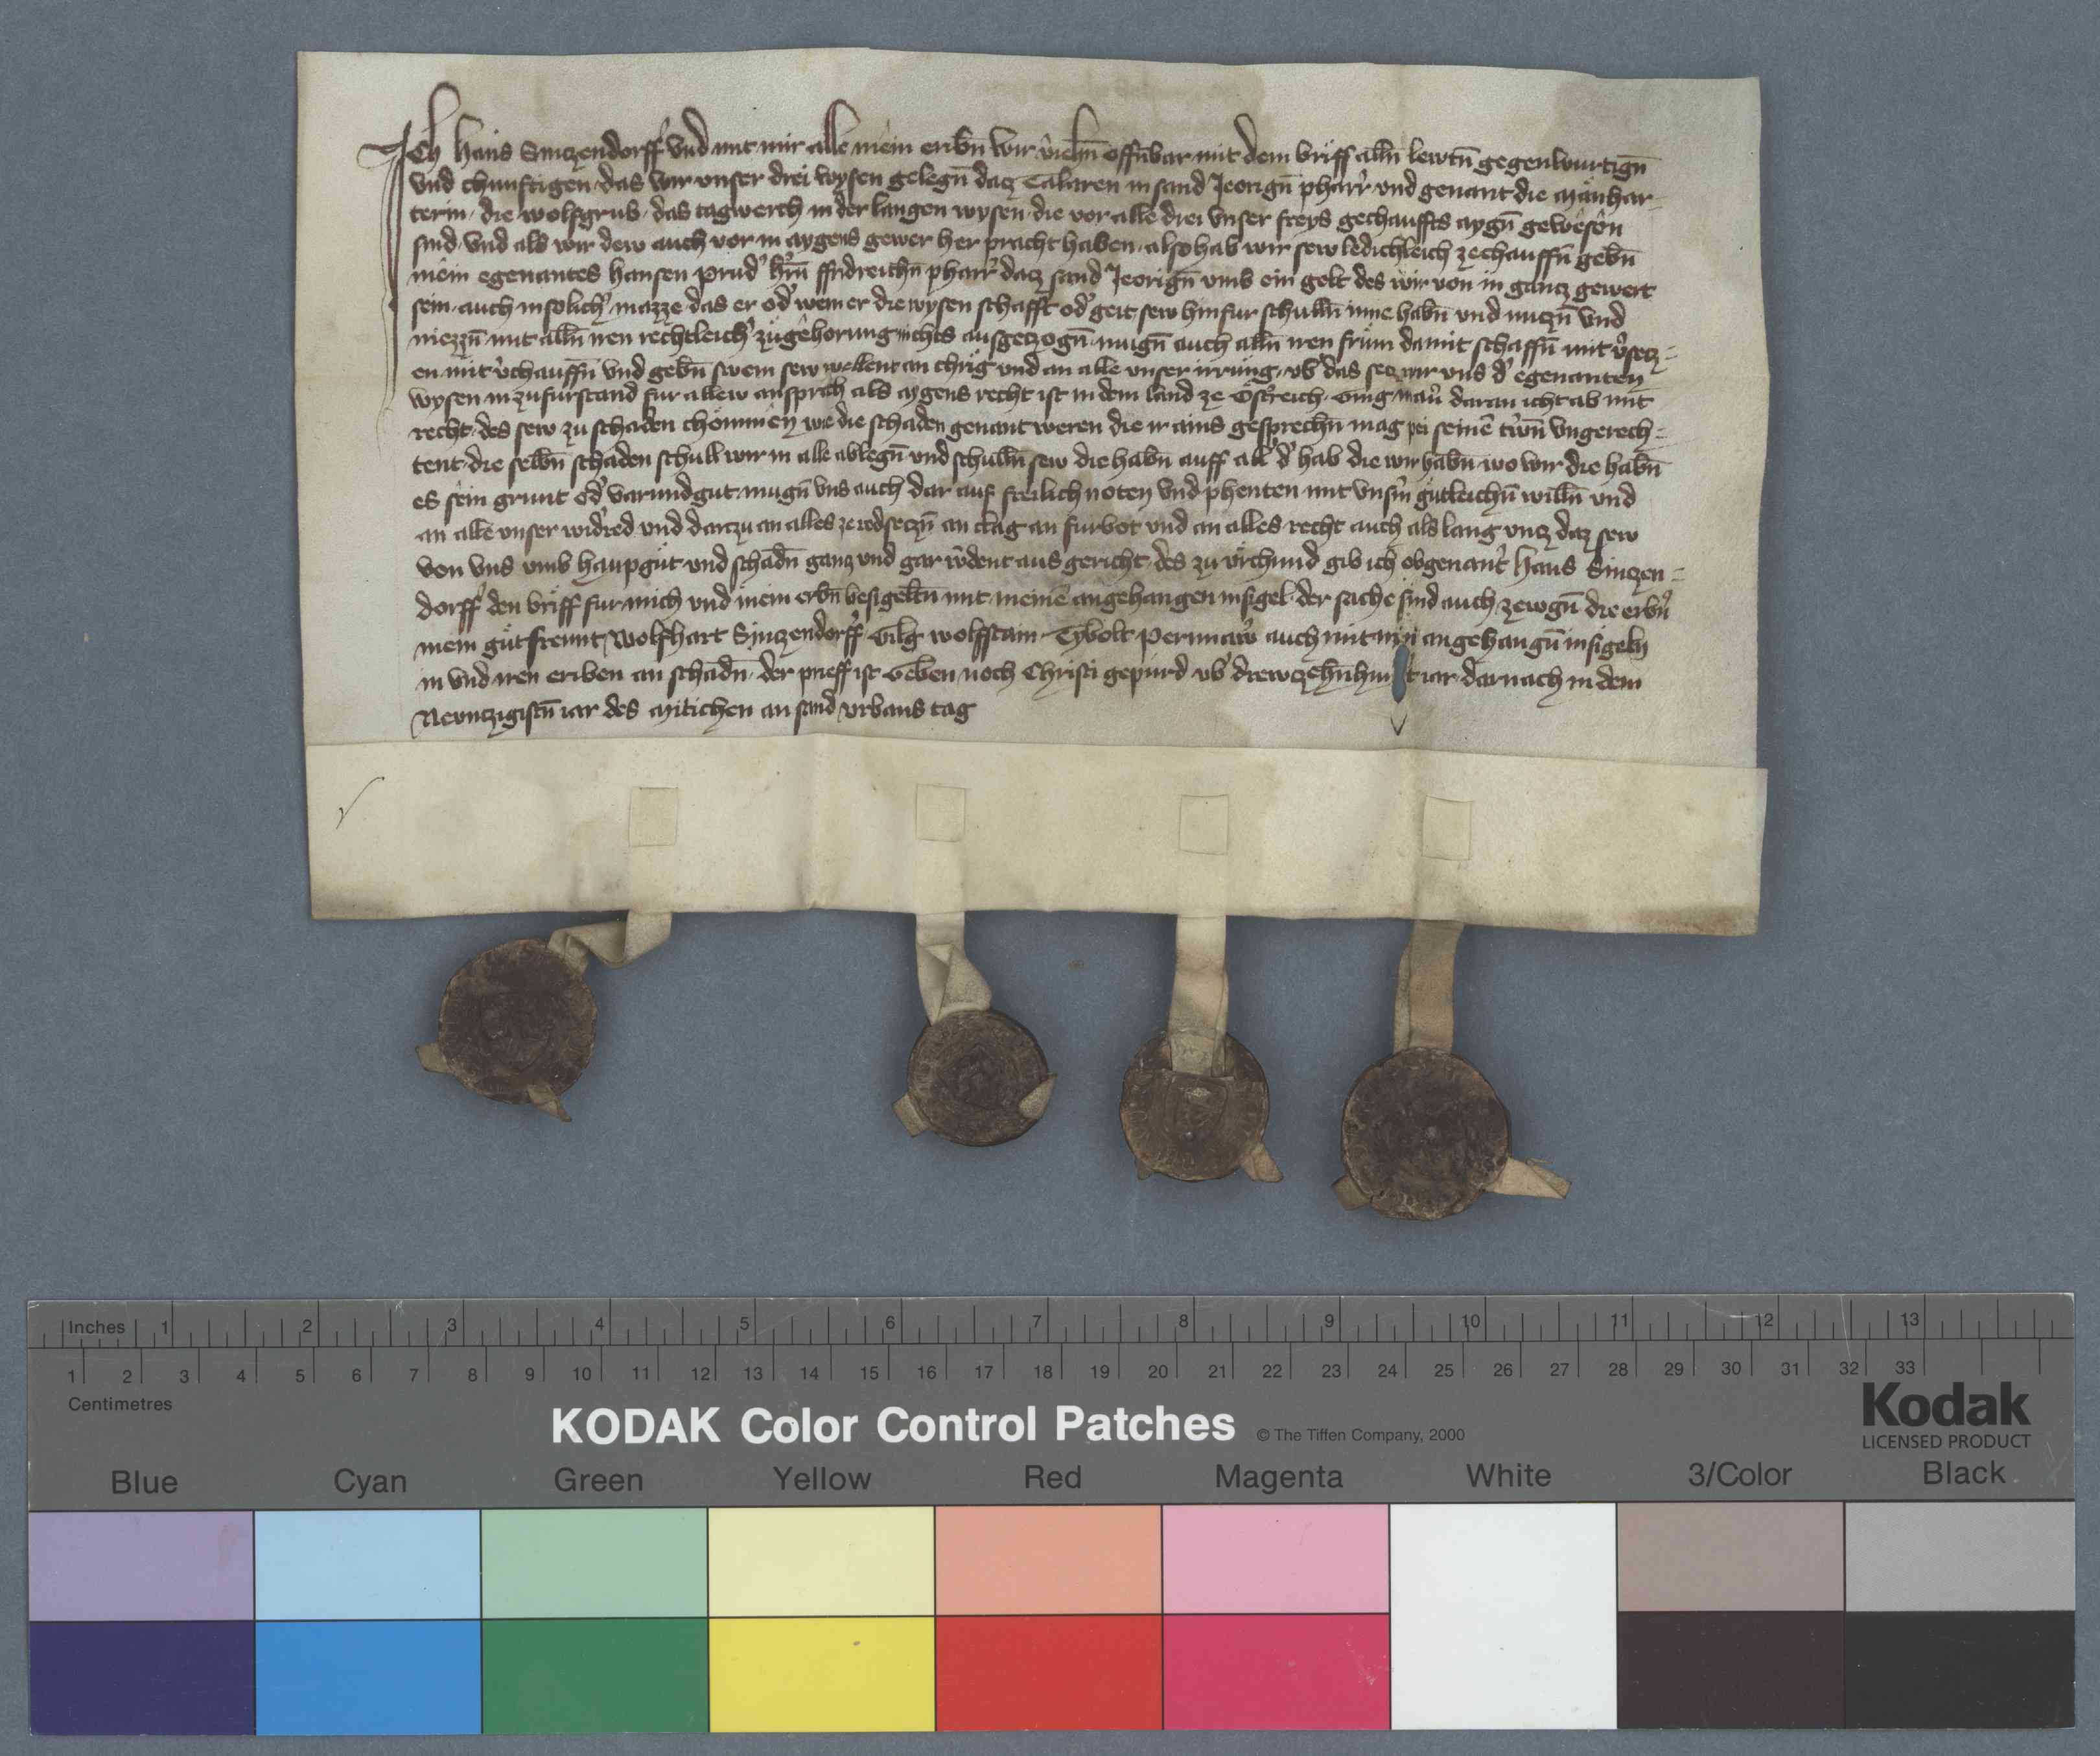 Ich Hans Sinczendorff' vnd mit mir alle mein eribn̄ wir v'iehn̄ offn̄bar mit dem briff alln̄ lewtn̄ gegenburtign̄
vnd chunftigen das wir vnser drei wysen gelegn̄ dacz Talaren in sand Jeorign̄ pharr' vnd genant die Mänhar-
terin die wolfsgrub das tagwerch in der langen wysen die vor alle drei vnser freys gechauffts aygn̄ gewesen
sind vnd als wir dew auch vor in aygens gewer her pracht haben also hab wir sew ledichleich ze chauffn̄ gebn̄
mein egenantes Hansen prud' h'rn̄ ffridreichn̄ pharr' dacz sand Jeorign̄ vmb ein gelt des wir von in gancz gewert
sein auch in solich' mazze das er od' wem er die wysen schafft od' geit sew hinfur schulln̄ inne habn̄ vnd nuczn̄ vnd
niezzn̄ mit alln̄ iren rechtleich' zugehorung nichts ausgeczogn̄ mugn̄ auch alln̄ iren frum damit schaffn̄ mit v'secz=
en mit v'chauffn̄ vnd gebn̄ swem sew wellent an chrig vnd an alle vnser irrung vb' das secz wir vns d' egenanten
wysen in zu furstand fur allew ansprach als aygens recht ist in dem land ze Öst'reich Ging in au' daran icht ab mit
recht des sew zu schaden chömmen wie die schaden genant weren die ir ains gesprechn̄ mag pei seinē trwn̄ vngerech=
tent die selbn̄ schaden schull wir in alle ablegn̄ vnd schulln̄ sew die habn̄ auff all' d' hab die wir habn̄ wo wir die habn̄
es sein grunt od' varundgut mugn̄ vns auch dar auf freilich noten vnd phenten mit vns'm gütleichn̄ willn̄ vnd
an alle vnser wid'red vnd darczu an alles ze red seczn̄ an clag an furbot vnd an alles recht auch als lang vncz daz sew
von vns vmb haupgut vnd schadn̄ ganz vnd gar w'dent aus gericht des zu vrchund gib ich obgenant' Hans Sinczen=
dorff' den briff fur mich vnd mein erbn̄ besigeltn̄ mit meinē angehangen insigel der sache sind auch zewgn̄ die erbn̄
mein gut frewnt Wolfhart Sinczendorff' Gilg wolfstain Tybolt Pernnaw' auch mit irn angehangn̄ insigeln
in vnd iren eriben an schadn̄ der prieff ist Geben noch Christi gepurd vb' drewczehn̄hun t iar darnach in dem
Newnczigistn̄ iar des Mitichen an sand vrbans tag
Inches 1 2 3 4 5 6 7 8 9 10 11 12 13
1 2 3 4 5 6 7 8 9 10 11 12 13 14 15 16 17 18 19 20 21 22 23 24 25 26 27 28 29 30 31 32 33
Centimetres
KODAK Color Control Patches © The Tiffen Company, 2000
Kodak
LICENSED PRODUCT
Blue Cyan Green Yellow Red Magenta White 3/Color Black